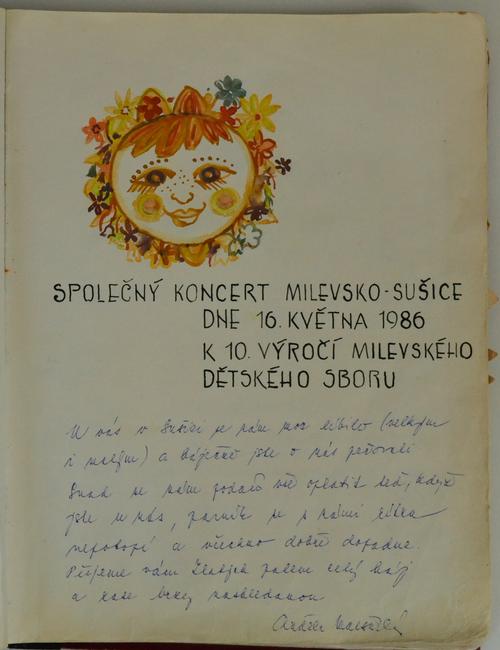 SPOLEČNÝ KONCERT MILEVSKO-SUŠICE
DNE 16. KVĚTNA 1986
K 10. VÝROČÍ MILEVSKÉHO
DĚTSKÉHO SBORU
U vás v Sušici se nám moc líbilo (velkým
i malým) a báječně jste o nás pečovali
Snad se nám podaří vše oplatit teď, když
jste u nás, parník se s námi
nepotopí a všechno dobře dopadne.
Přejeme vám celý
a brzy nashledanou